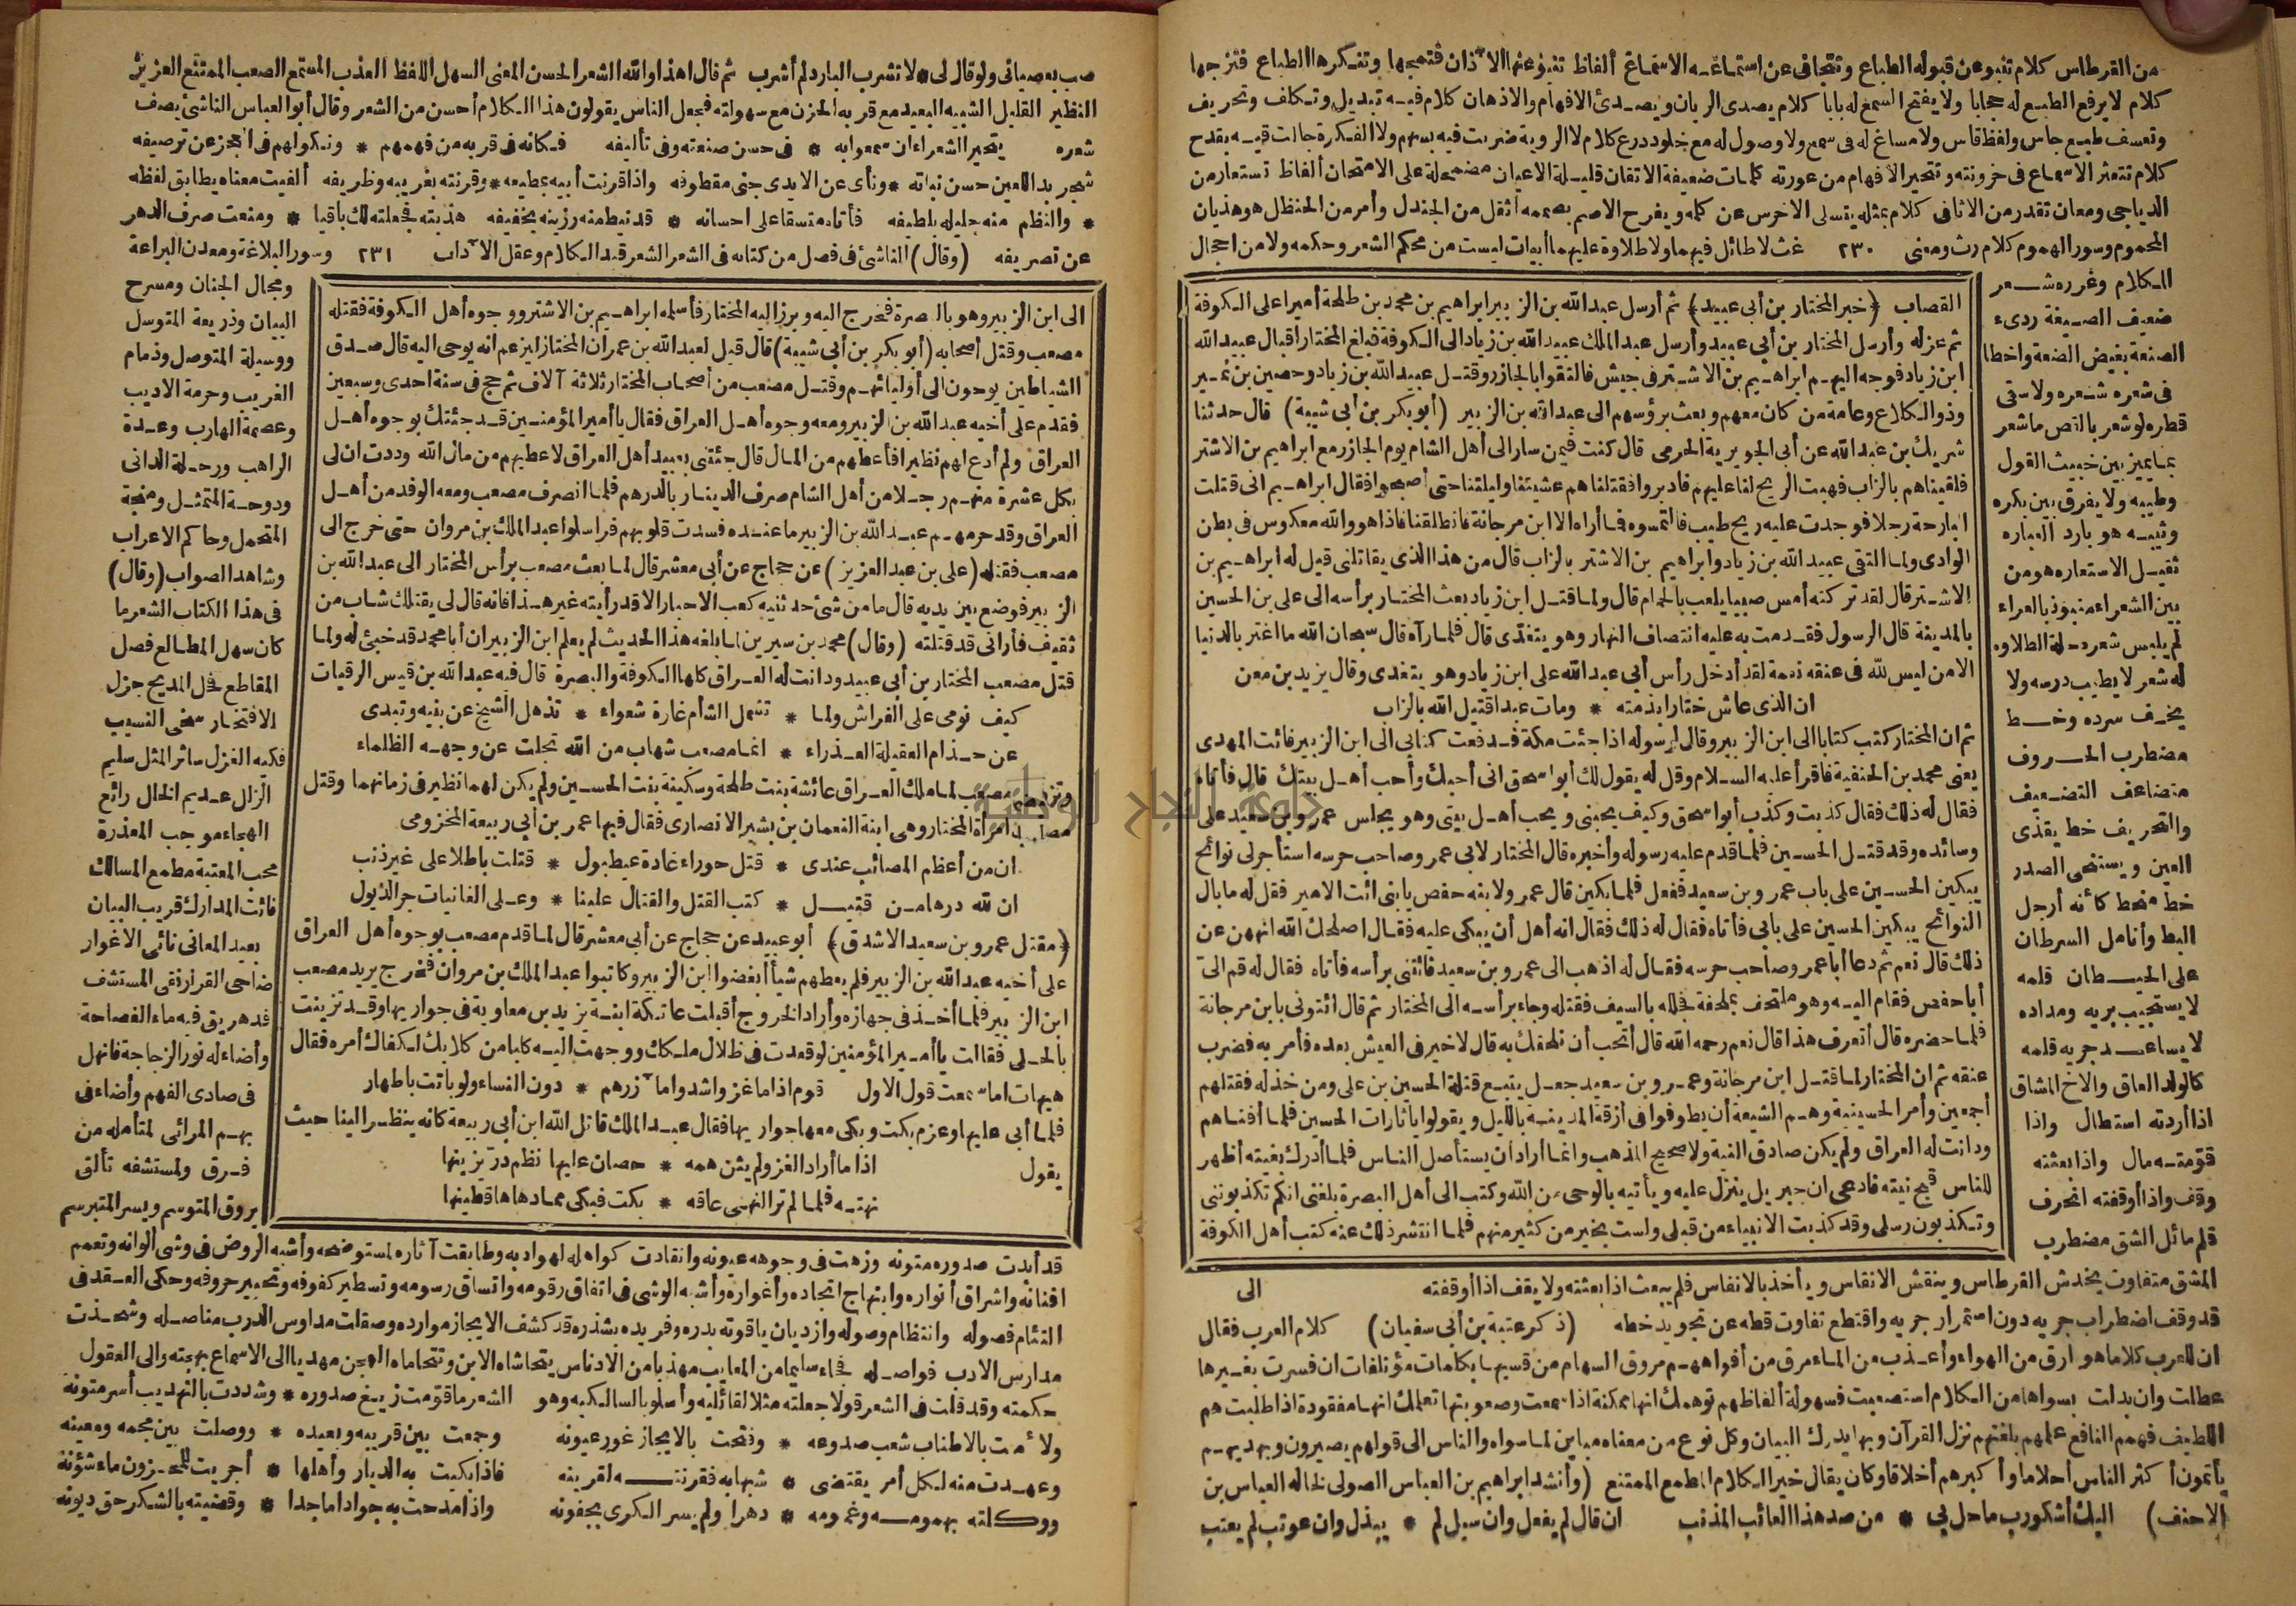 من القرطاس كلام تنبو عن قبوله الطباع وتتجافى عن استماعه الاسماع ألفاظ تنبو عنها الآذان فتمجها وتنكرها الطباع فتزجها
كلام لا يرفع الطبع له حجابا ولا يفتح السمع له بابا كلام يصدى الريان ويصدئ الافهام والاذهان كلام فيه تبديل وتكلف وتحريف
وتعسف طبع جاس ولفظ قاس ولا مساغ له فى سمع ولا وصول له مع خلو ذرع كلام لا الروية ضربت فيه بسهم ولا الفكرة جالت فيه بقدح
كلام تتعثر الاسماع فى حزونته وتتحير الافهام من عورته كلمات ضعيفة الاتقان قليلة الاعيان مضمحلة على الامتحان ألفاظ تستعار من
الدياجى ومعان تقدر من الاثافى كلام بمثله يتسلى الاخرس عن كلمه ويفرح الاصم بصممه أثقل من الجندل وأمر من الحنظل هو هذيان
المحموم وسور الهموم كلام رث ومعنى ٢٣٠ غث لا طائل فيهما ولا طلاوة عليهما أبيات ليست من محكم الشعر وحكمه ولا من احجال
الكلام وغرره شعر
ضعيف الصيغة ردىء
الصنعة بغيض الصنعة واخطا
فى شعره شعره ولا سقى
قطره لو شعر بالنقص ما شعر
بما يميز بين خبيث القول
وطيبه ولا يفرق بين بكره
وثيبه هو بارد العباره
ثقيل الاستعاره هو من
بين الشعراء منبوذ بالعراء
لم يلبس شعره حلة الطلاوه
له شعر لا يطيب درسه ولا
يخف سرده وخط
مضطرب الحروف
متضاعف التضعيف
والتحريف خط يقذى
العين ويستقى الصدر
خط منحط كأنه أرجل
البط وأنامل السرطان
على الحيطان قلمه
لا يستجيب بريه ومداده
لا يساعد جريه قلمه
كالولد العاق والاخ المشاق
اذا أردته استطال واذا
قومته مال واذا بعثته
وقف واذا أوقفته انحرف
قلم مائل الشق مضطرب
القصاب ﴿خبر المختار بن أبى عبيد﴾ ثم أرسل عبد الله بن الزبير ابراهيم بن محمد بن طلحة أميرا على الكوفة
ثم عزله وأرسل المختار بن أبى عبيد وأرسل عبد الملك عبيد الله بن زياد الى الكوفة فبلغ المختار أقبال عبيد الله
ابن زياد فوجه اليهم ابراهيم بن الاشتر فى جيش فالتقوا بالجازر وقتل عبيد الله بن زياد وحصين بن نمير
وذو الكلاع وعامة من كان معهم وبعث برؤسهم الى عبد الله بن الزبير (أبو بكر بن أبى شيبة) قال حدثنا
شريك بن عبد الله عن أبى الجويرية الجرمى قال كنت فيمن سار الى أهل الشام يوم الجازر مع ابراهيم بن الاشتر
فلقيناهم بالزاب فهبت الريح لنا عليهم فأدبروا فقتلناهم عشيتنا وليلتنا حتى أصبحوا فقال ابراهيم انى قتلت
البارحة رجلا فوجدت عليه ريح طيب فالتمسوه فما أراه الا ابن مرجانة فانطلقنا فاذا هو والله معكوس فى بطن
الوادى ولما التقى عبيد الله بن زياد وابراهيم بن الاشتر بالزاب قال من هذا الذى يقاتلنى قيل له ابراهيم بن
الاشتر قال لقد تركته أمس صبيا يلعب بالحمام قال ولما قتل ابن زياد بعث المختار برأسه الى على بن الحسين
بالمدينة قال الرسول فقدمت به عليه انتصاف النهار وهو يتغدى قال فلما رآه قال سبحان الله ما اغتر بالدنيا
الا من ليس لله فى عنقه نعمة لقد أدخل رأس أبى عبد الله على ابن زياد وهو يتغدى وقال يزيد بن معن
ان الذى عاش ختارا بذمته * ومات عبدا قتيل الله بالزاب
ثم ان المختار كتب كتابا الى ابن الزبير وقال لرسوله اذا جئت مكة فدفعت كتابى الى ابن الزبير فائت المهدى
يعنى محمد بن الحنفية فاقرأ عليه السلام وقل له يقول لك أبو اسحق انى أحبك وأحب أهل بيتك قال فأتاه
فقال له ذلك فقال كذبت وكذب أبو اسحق وكيف يحبنى ويحب أهل بيتى وهو يجلس عمر بن سعيد على
وسائده وقد قتل الحسين فلما قدم عليه رسوله وأخبره قال المختار لابى عمر وصاحب حرسه استأجر لى نوائح
يبكين الحسين على باب عمرو بن سعيد ففعل فلما بكين قال عمرو لابنه حفص يا بنى ائت الامير فقل له ما بال
النوائح يبكين الحسين على بابى فأتاه فقال له ذلك فقال انه أهل أن يبكى عليه فقال اصلحك الله انههن عن
ذلك قال نعم ثم دعا أبا عمر وصاحب حرسه فقال له اذهب الى عمرو بن سعيد فائتنى برأسه فأتاه فقال له قم الى
أبا حفص فقام اليه وهو ملتحف بملحفة فجلله بالسيف فقتله وجاء برأسه الى المختار ثم قال ائتونى بابن مرجانة
فلما حضره قال أتعرف هذا قال نعم رحمه الله قال أتحب أن نلحقك به قال لا خير فى العيش بعده فأمر به فضرب
عنقه ثم ان المختار لما قتل ابن مرجانة وعمرو بن سعيد جعل يتبع قتلة الحسين بن على ومن خذله فقتلهم
أجمعين وأمر الحسينية وهم الشيعة أن يطوفوا فى أزقة المدينة بالليل ويقولوا يا ثارات الحسين فلما أفناهم
ودانت له العراق ولم يكن صادق النية ولا صحيح المذهب وانما أراد أن يستأصل الناس فلما أدرك بغيته أظهر
للناس قبح نيته فادعى ان جبريل ينزل عليه ويأتيه بالوحى من الله وكتب الى أهل البصرة بلغنى انكم تكذبوننى
وتكذبون رسلى وقد كذبت الانبياء من قبلى ولست بخير من كثير منهم فلما انتشر ذلك عنه كتب أهل الكوفة
المشق متفاوت يخدش القرطاس وينقش الانقاس ويأخذ بالانفاس فلم يبعث اذا بعثته ولا يقف اذا أوقفته الى
قد وقف اضطراب جريه دون استمرار جريه واقتطع تفاوت قطه عن تجويد خطه (ذكر عتبة بن أبى سفيان) كلام العرب فقال
ان للعرب كلاما هو ارق من الهواء وأعذب من الماء مرق من أفواههم مروق السهام من قسيها بكلمات مؤتلفات ان فسرت بغيرها
عطلت وان بدلت بسواها من الكلام استصعبت فسهولة ألفاظهم توهمك انها ممكنة اذا سمعت وصعوبتها تعلمك انها مفقودة اذا طلبت هم
اللطيف فهمهم النافع علمهم بلغتهم نزل القرآن وبها يدرك البيان وكل نوع من معناه مباين لما سواه والناس الى قولهم يصيرون وبهديهم
يأتمون أكثر الناس أحلاما وأكبرهم أخلاقا وكان يقال خير الكلام المطمع الممتنع (وأنشد ابراهيم بن العباس الصولى لخاله العباس بن
الاحنف) اليك أشكو رب ما حل بى * من صد هذا العائب المذنب ان قال لم يفعل وان سيل لم * يبذل وان عوتب لم يعتب
صب بعصيانى ولو قال لى * لا تشرب البارد لم أشرب ثم قال هذا والله الشعر الحسن المعنى السهل اللفظ العذب المستمع الصعب الممتنع العزيز
النظير القليل الشبيه البعيد مع قربه الحزن مع سهولته فجعل الناس يقولون هذا الكلام أحسن من الشعر وقال أبو العباس الناشئ يصف
شعره يتحير الشعراء ان سمعوا به * فى حسن صنعته وفى تأليفه فكانه فى قربه من فهمهم * ونكولهم فى العجز عن ترصيفه
شجر بدا للعين حسن نباته * ونأى عن الايدى جنى مقطوفه واذا قرنت أبيه بمطيعه * وقرنته بغريبه وظريفه ألفيت معناه يطابق لفظه
* والنظم منه جليله بلطيفه فأتاك متسقا على احسانه * قد نيط منه رزينه بخفيفه هذبته فجعلته لك باقيا * ومنعت صرف الدهر
عن تصريفه (وقال) الناشئ فى فصل من كتابه فى الشعر الشعر قيد الكلام وعقل الآداب ٢٣١ وسور البلاغة ومعدن البراعة
ومجال الجنان ومسرح
البيان وذريعة المتوسل
ووسيلة المتوصل وذمام
الغريب وحرمة الاديب
وعصمة الهارب وعدة
الراهب ورحلة الدانى
ودوحة المتمثل ومنحة
المتحمل وحاكم الاعراب
وشاهد الصواب (وقال)
فى هذا الكتاب الشعر ما
كان سهل المطالع فصل
المقاطع فحل المديح جزل
الافتخار شجى النسيب
فكه الغزل سائر المثل سليم
الزلل عديم الخلل رائع
الهجاء موجب المعذرة
محب المعتبة مطمع المسالك
فائت المدارك قريب البيان
بعيد المعانى نائى الاغوار
ضاحى القرار نقى المستشف
قد هريق فيه ماء الفصاحة
وأضاء له نور الزجاجة فانهل
فى صادى الفهم وأضاء فى
بهم المرائى لمتأمله من
فرق ولمستشفه تألق
يروق المتوسم ويسر المتبرسم
الى ابن الزبير وهو بالبصرة فخرج اليه وبرز اليه المختار فأسلمه ابراهيم بن الاشتر ووجوه أهل الكوفة فقتله
مصعب وقتل أصحابه (أبو بكر بن أبى شيبة) قال قيل لعبد الله بن عمر ان المختار ليزعم انه يوحى اليه قال صدق
الشياطين يوحون الى أوليائهم وقتل مصعب من أصحاب المختار ثلاثة آلاف ثم حج فى سنة احدى وسبعين
فقدم على أخيه عبد الله بن الزبير ومعه وجوه أهل العراق فقال يا أمير المؤمنين قد جئتك بوجوه أهل
العراق ولم أدع لهم نظيرا فأعطهم من المال قال جئتنى بعبيد أهل العراق لاعطيهم من مال الله وددت ان لى
بكل عشرة منهم رجلا من أهل الشام صرف الدينار بالدرهم فلما انصرف مصعب ومعه الوفد من أهل
العراق وقد حرمهم عبد الله بن الزبير ما عنده فسدت قلوبهم فراسلوا عبد الملك بن مروان حتى خرج الى
مصعب فقتله (على بن عبد العزيز) عن حجاج عن أبى معشر قال لما بعث مصعب برأس المختار الى عبد الله بن
الزبير فوضع بين يديه قال ما من شئ حدثنيه كعب الاحبار الا قد رأيته غير هذا فانه قال لى يقتلك شاب من
ثقيف فأرانى قد قتلته (وقال) محمد بن سيرين لما بلغه هذا الحديث لم يعلم ابن الزبير ان أبا محمد قد خبئ له ولما
قتل مصعب المختار بن أبى عبيد ودانت له العراق كلها الكوفة والبصرة قال فيه عبد الله بن قيس الرقيات
كيف نومى على الفراش ولما * تشمل الشأم غارة شعواء * تذهل الشيخ عن بنيه وتبدى
عن خدام العقيلة العذراء * انما مصعب شهاب من الله تجلت عن وجهه الظلماء
وتزوج مصعب لما ملك العراق عائشة بنت طلحة وسكينة بنت الحسين ولم يكن لهما نظير فى زمانهما وقتل
مصعب امرأة المختار وهى ابنة النعمان بن بشير الانصارى فقال فيها عمر بن أبى ربيعة المخزومى
ان من أعظم المصائب عندى * قتل حوراء غادة عيطبول * قتلت باطلا على غير ذنب
ان لله درها من قتيل * كتب القتل والقتال علينا * وعلى الغانيات جر الذيول
﴿مقتل عمرو بن سعيد الاشدق﴾ أبو عبيد عن حجاج عن أبى معشر قال لما قدم مصعب بوجوه أهل العراق
على أخيه عبد الله بن الزبير فلم يعطهم شيأ أبغضوا ابن الزبير وكاتبوا عبد الملك بن مروان فخرج يريد مصعب
ابن الزبير فلما أخذ فى جهازه وأراد الخروج أقبلت عاتكة ابنة يزيد بن معاوية فى جواريها وقد تزينت
بالحلى فقالت يا أمير المؤمنين لو قعدت فى ظلال ملكك ووجهت اليه كلبا من كلابك لكفاك أمره فقال
هيهات اما سمعت قول الاول قوم اذا ما غزوا شدوا مآزرهم * دون النساء ولو باتت باطهار
فلما أبى عليها وعزم بكت وبكى معها جواريها فقال عبد الملك قاتل الله ابن أبى ربيعة كانه ينظر الينا حيث
يقول اذا ما أراد الغزو لم يثن همه * حصان عليها نظم در يزينها
نهته فلما لم تر النهى عاقه * بكت فبكى مما دهاها قطينها
قد أبدت صدوره متونه وزهت فى وجوهه عيونه وانقادت كواهله لهواديه وطابقت آثاره لمستوضحه وأشبه الروض فى وشى ألوانه وتعمم
افنانه واشراق أنواره وابتهاج انجاده وأغواره وأشبه الوشى فى اتفاق رقومه واتساق رسومه وتسطير كفوفه وتحبير حروفه وحكى العقد فى
التئام فصوله وانتظام وصوله وازديان ياقوته بدره وفريده بشذره قد كشف الايجاز موارده وصقلت مداوس الدرب مناصله وشحذت
مدارس الادب فواصله فجاء سليما من المعايب مهذبا من الادناس يتحاشاه الابن وتتحاماه الهجن مهديا الى الاسماع بهجته والى العقول
حكمته وقد قلت فى الشعر قولا جعلته مثلا لقائليه وأسلوبا لسالكيه وهو الشعر ما قومت زيغ صدوره * وشددت بالتهذيب أسر متونه
ولأمت بالاطناب شعب صدوعه * وفتحت بالايجاز غور عيونه وجمعت بين قريبه وبعيده * ووصلت بين مجمه ومعينه
وعهدت منه لكل أمر يقتضى * شبها به فقرنته لقرينه فاذا بكيت به الديار وأهلها * أجريت للمحزون ماء شؤنه
ووكلته بهمومه وغمومه * دهرا ولم يسر الكرى بجفونه واذا مدحت به جوادا ماجدا * وقضيته بالشكر حق ديونه
جامعة النجاح الوطنية